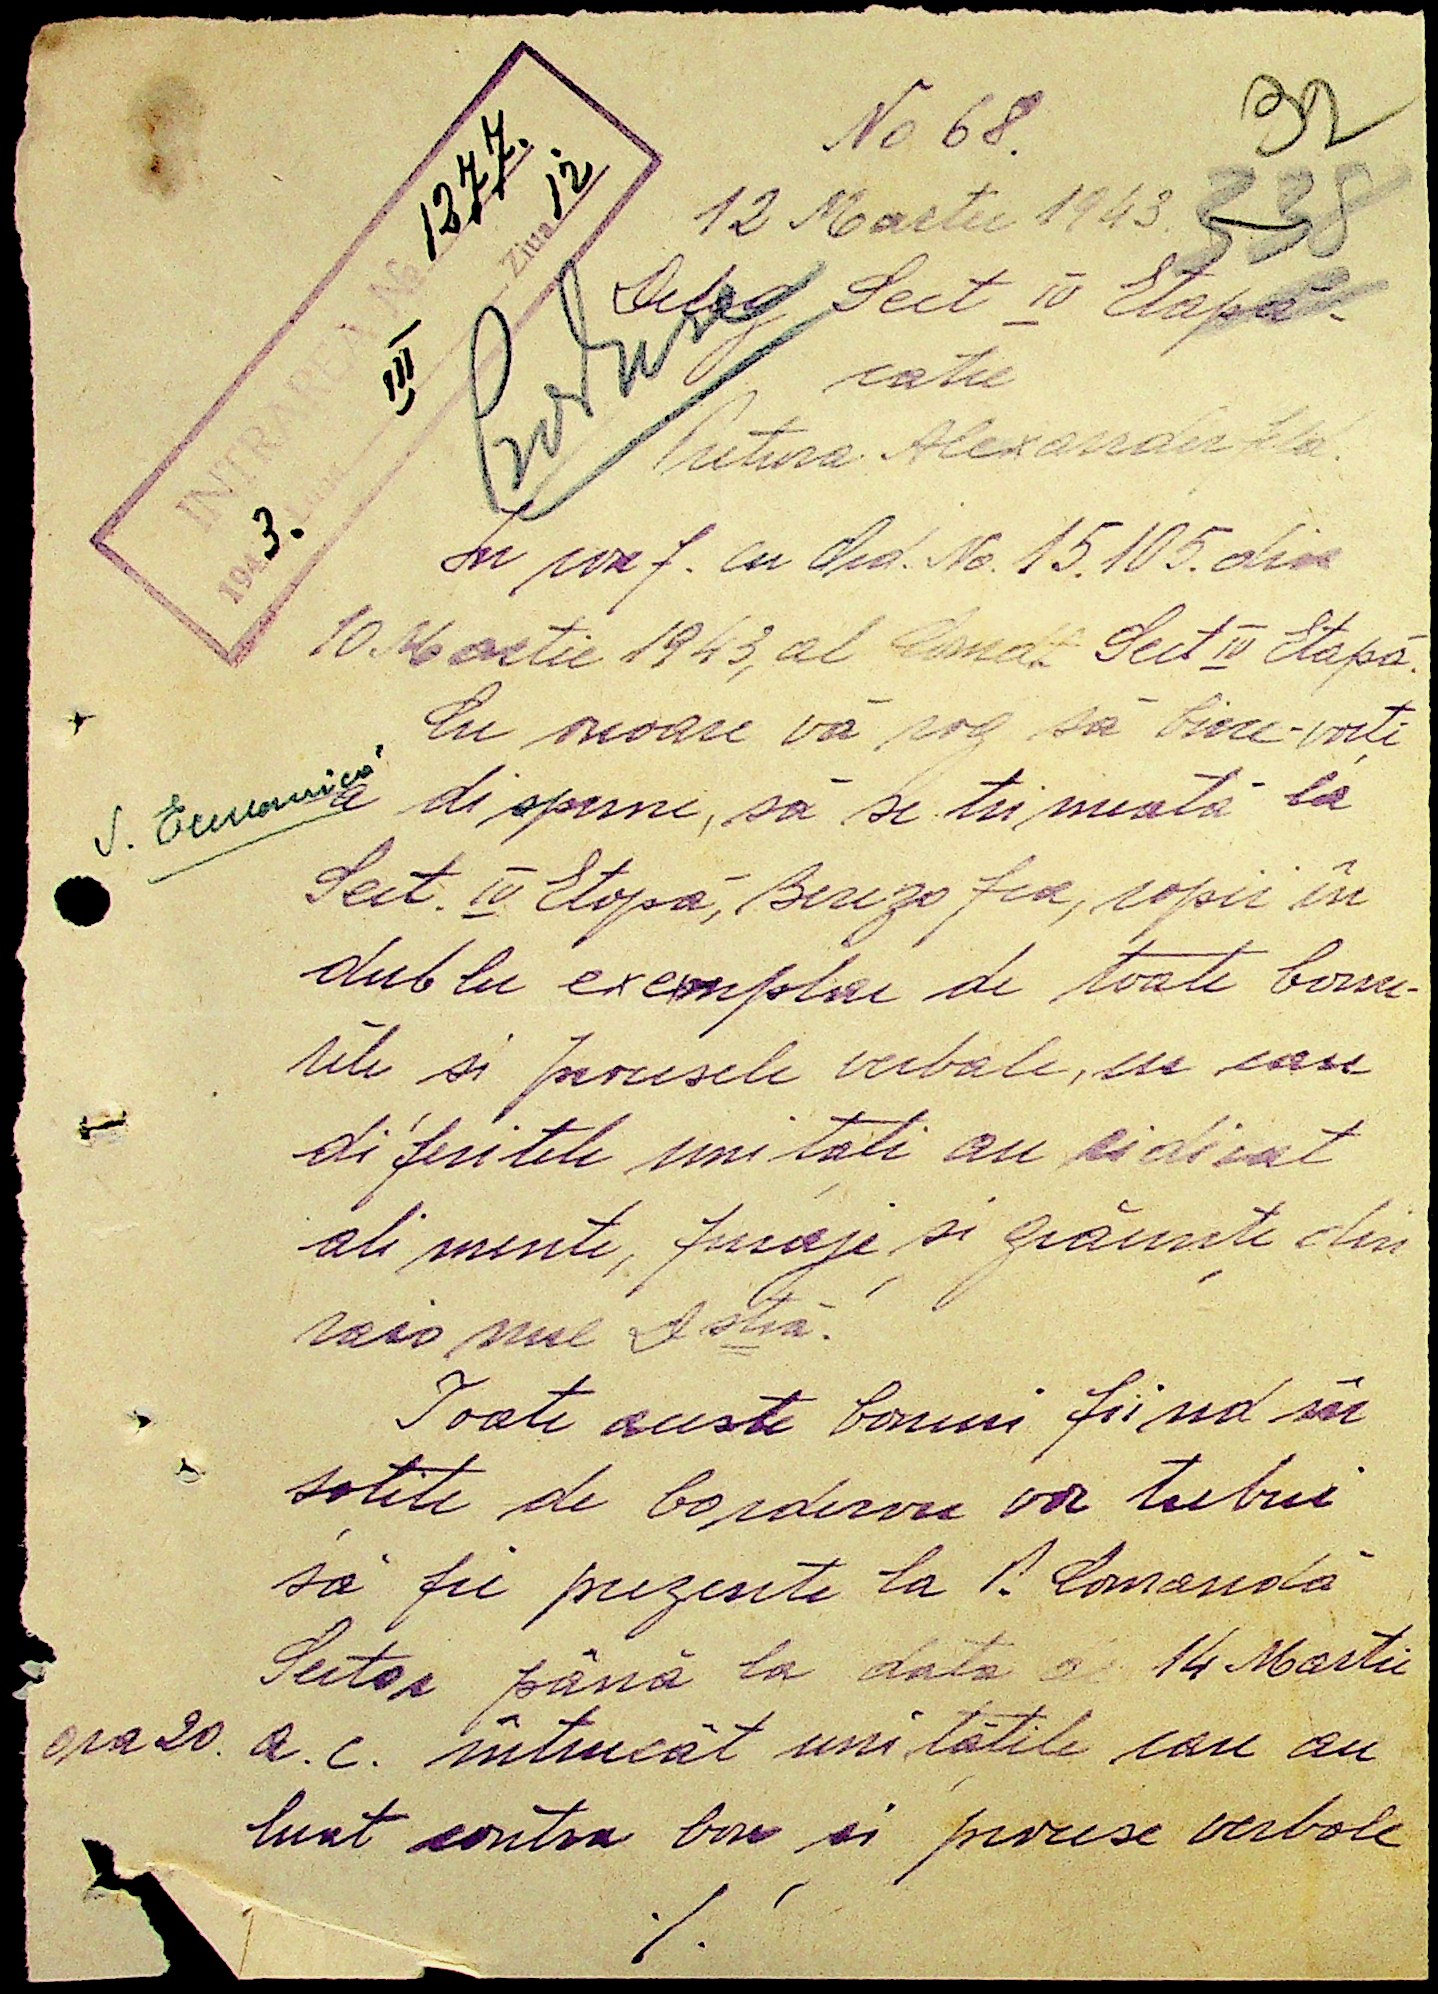 No 68.
32
338
12 Martie 1943.
INTRAREA No 1277.
Ziua 12
Luna III
1943.
Deleg Sect IV Etapă.
catre
Pretura Alexanderfeld.
In conf. cu Ord. No. 15.105. din
10 Martie 1943, al Comdt Sect IV Etapă.
Cu onoare vă rog să bine-voiți
S. Economică
a dispune, să se trimeată la
Sect. IV Etapă, Berezofca, copii în
dublu exemplar de toate bonu-
rile si procesele verbale, cu care
diferitele unități au ridicat
alimente, furaje, si grăunțe din
raionul Dstră.
Toate aceste bonuri fiind în
soțite de borderou vor trebui
să fie prezente la P. Comandă
Sector până la data de 14 Martie
ora 20. a.c. întrucât unitățile care au
luat contra bon si procese verbale
./.